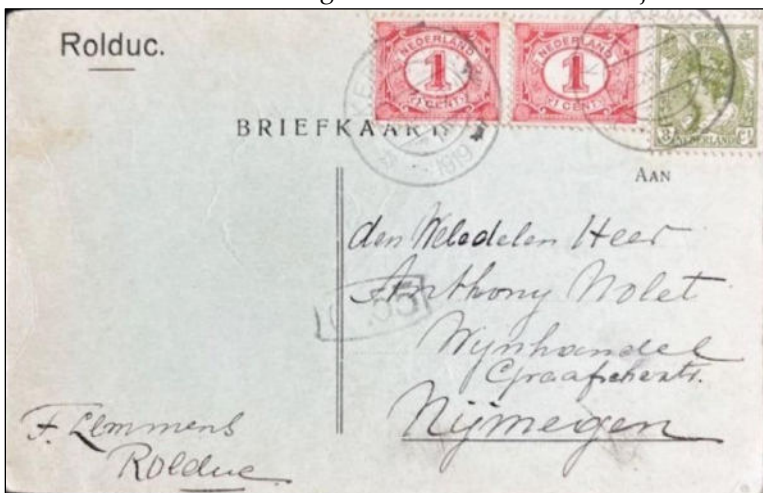 Rolduc.
NEDERLAND
1
CENT
NEDERLAND
1
CENT
NEDERLAND
1919
BRIEFKAART
AAN
den Weledelen Heer
Anthony Nolet
Wynhandel
Graafschestr.
Nijmegen
F. Lemmens
Rolduc